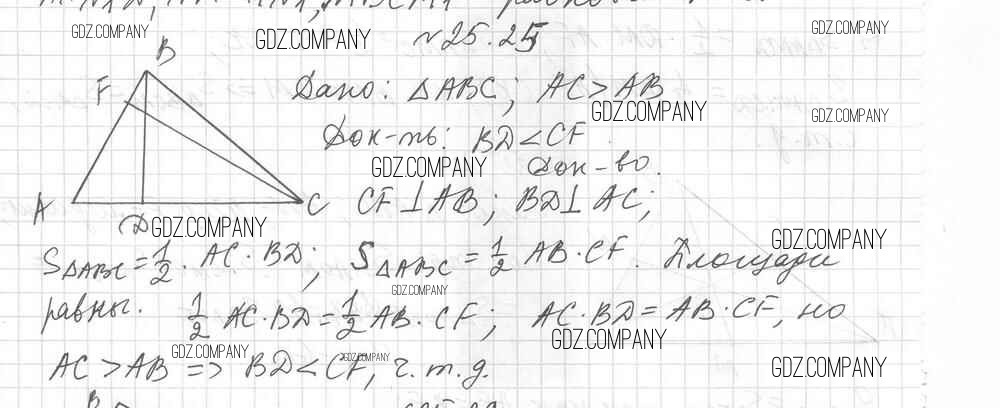 GDZ.COMPANY GDZ.COMPANY №25.25 GDZ.COMPANY
B
F Дано: △ABC; AC > AB
GDZ.COMPANY GDZ.COMPANY
Док-ть: BD < CF
GDZ.COMPANY Док-во.
A D C CF ⊥ AB; BD ⊥ AC;
GDZ.COMPANY GDZ.COMPANY
S△ABC = 1/2 · AC · BD; S△ABC = 1/2 AB · CF. Площади
GDZ.COMPANY
равны. 1/2 AC · BD = 1/2 AB · CF; AC · BD = AB · CF, но
GDZ.COMPANY GDZ.COMPANY GDZ.COMPANY
AC > AB => BD < CF, ч.т.д.
GDZ.COMPANY
B